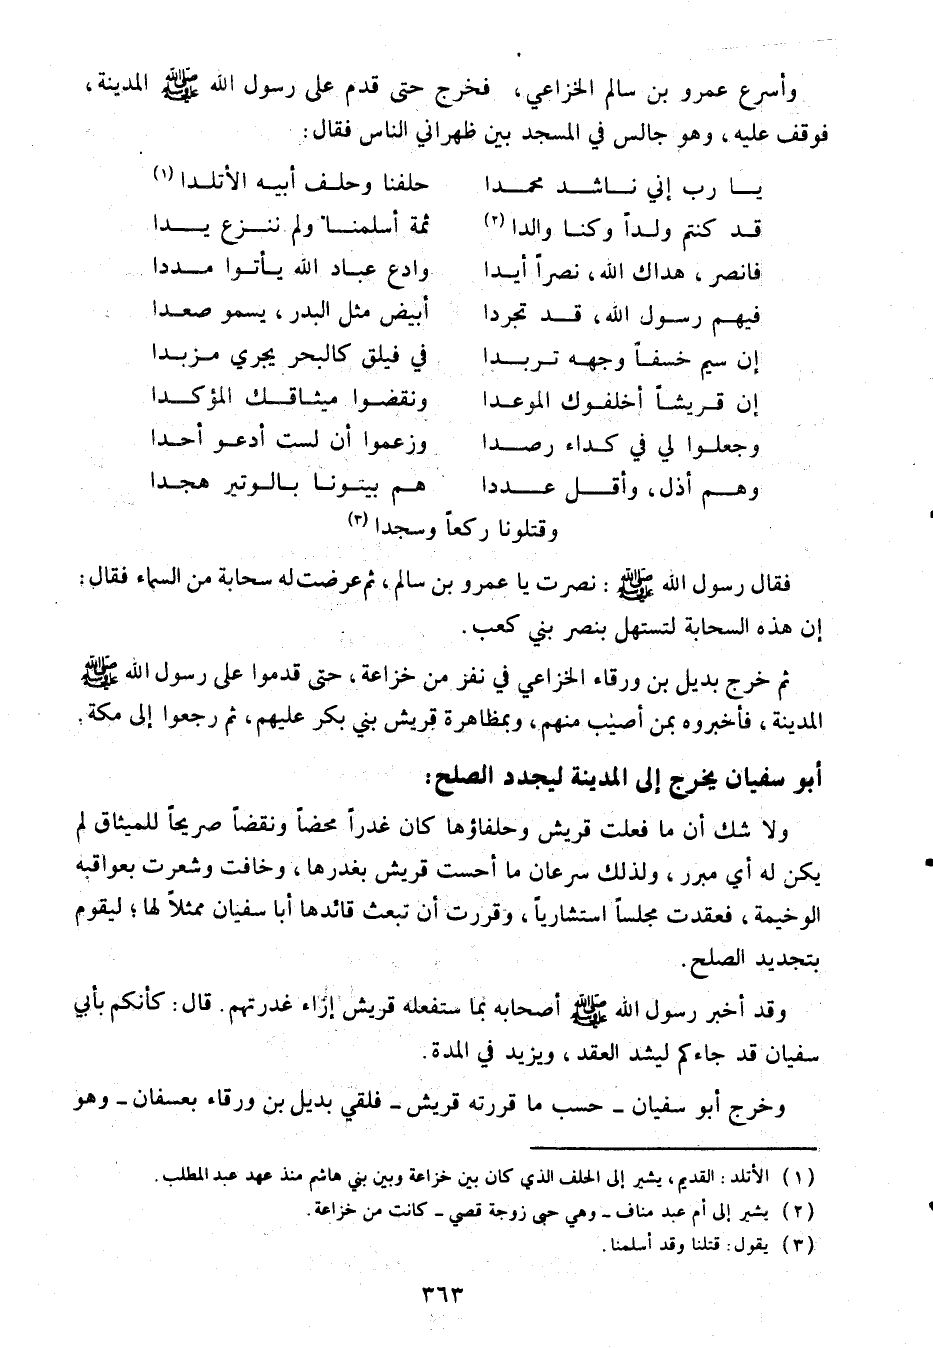 وأسرع عمرو بن سالم الخزاعي، فخرج حتى قدم على رسول الله ﷺ المدينة،
فوقف عليه، وهو جالس في المسجد بين ظهراني الناس فقال:
يا رب إني ناشد محمدا حلفنا وحلف أبيه الأتلدا (١)
قد كنتم ولداً وكنا والدا (٢) ثمة أسلمنا ولم ننزع يدا
فانصر، هداك الله، نصراً أيدا وادع عباد الله يأتوا مددا
فيهم رسول الله، قد تجردا أبيض مثل البدر، يسمو صعدا
إن سيم خسفاً وجهه تربدا في فيلق كالبحر يجري مزبدا
إن قريشاً أخلفوك الموعدا ونقضوا ميثاقك المؤكدا
وجعلوا لي في كداء رصدا وزعموا أن لست أدعو أحدا
وهم أذل، وأقل عددا هم بيتونا بالوتير هجدا
وقتلونا ركعاً وسجدا (٣)
فقال رسول الله ﷺ : نصرت يا عمرو بن سالم، ثم عرضت له سحابة من السماء فقال:
إن هذه السحابة لتستهل بنصر بني كعب.
ثم خرج بديل بن ورقاء الخزاعي في نفر من خزاعة، حتى قدموا على رسول الله ﷺ
المدينة، فأخبروه بمن أصيب منهم، وبمظاهرة قريش بني بكر عليهم، ثم رجعوا إلى مكة.
أبو سفيان يخرج إلى المدينة ليجدد الصلح:
ولا شك أن ما فعلت قريش وحلفاؤها كان غدراً محضاً ونقضاً صريحاً للميثاق لم
يكن له أي مبرر، ولذلك سرعان ما أحست قريش بغدرها، وخافت وشعرت بعواقبه
الوخيمة، فعقدت مجلساً استشارياً، وقررت أن تبعث قائدها أبا سفيان ممثلاً لها؛ ليقوم
بتجديد الصلح.
وقد أخبر رسول الله ﷺ أصحابه بما ستفعله قريش إزاء غدرتهم. قال: كأنكم بأبي
سفيان قد جاءكم ليشد العقد، ويزيد في المدة.
وخرج أبو سفيان ـ حسب ما قررته قريش ـ فلقي بديل بن ورقاء بعسفان ـ وهو
(١) الأتلد: القديم، يشير إلى الحلف الذي كان بين خزاعة وبين بني هاشم منذ عهد عبد المطلب.
(٢) يشير إلى أم عبد مناف ـ وهي حبى زوجة قصي ـ كانت من خزاعة.
(٣) يقول: قتلنا وقد أسلمنا.
٣٦٣